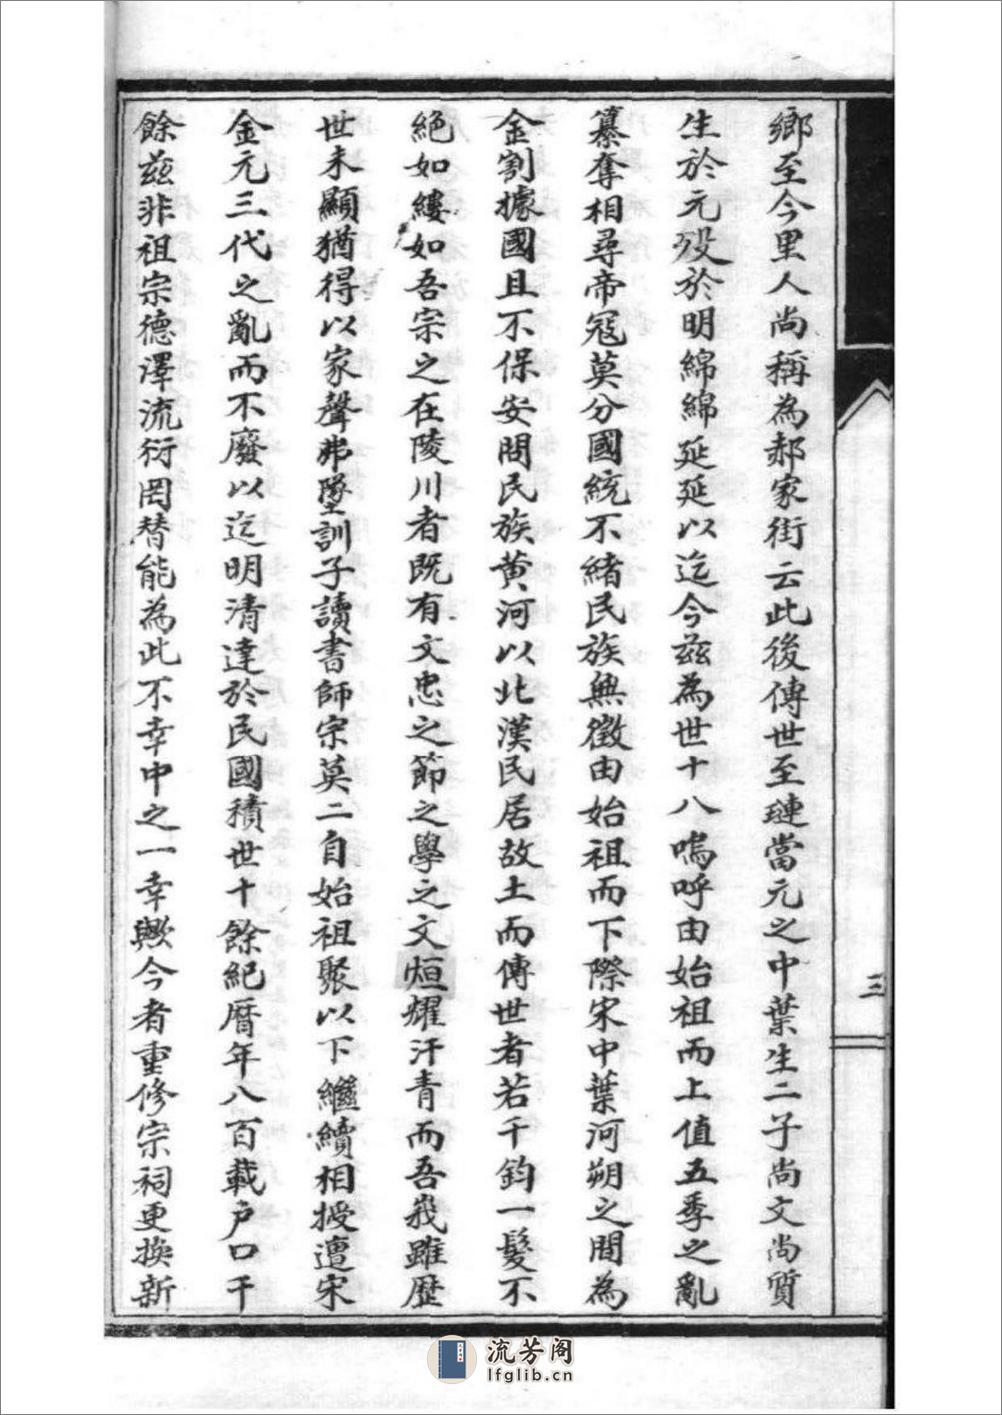 鄉至今里人尚稱為郝家街云此後傳世至璉當元之中葉生二子尚文尚質
生於元歿於明綿綿延延以迄今茲為世十八嗚呼由始祖而上值五季之亂
纂奪相尋帝寇莫分國統不緒民族無徵由始祖而下際宋中葉河朔之間為
金割據國且不保安問民族黃河以北漢民居故土而傳世者若千鈞一髮不
絕如縷如吾宗之在陵川者既有文忠之節之學之文烜耀汗青而吾我雖歷
世未顯猶得以家聲弗墜訓子讀書師宗莫二自始祖聚以下繼續相授遭宋
金元三代之亂而不廢以迄明清達於民國積世十餘紀曆年八百載戶口千
餘茲非祖宗德澤流衍罔替能為此不幸中之一幸歟今者重修宗祠更換新
三
流芳阁
lfglib.cn